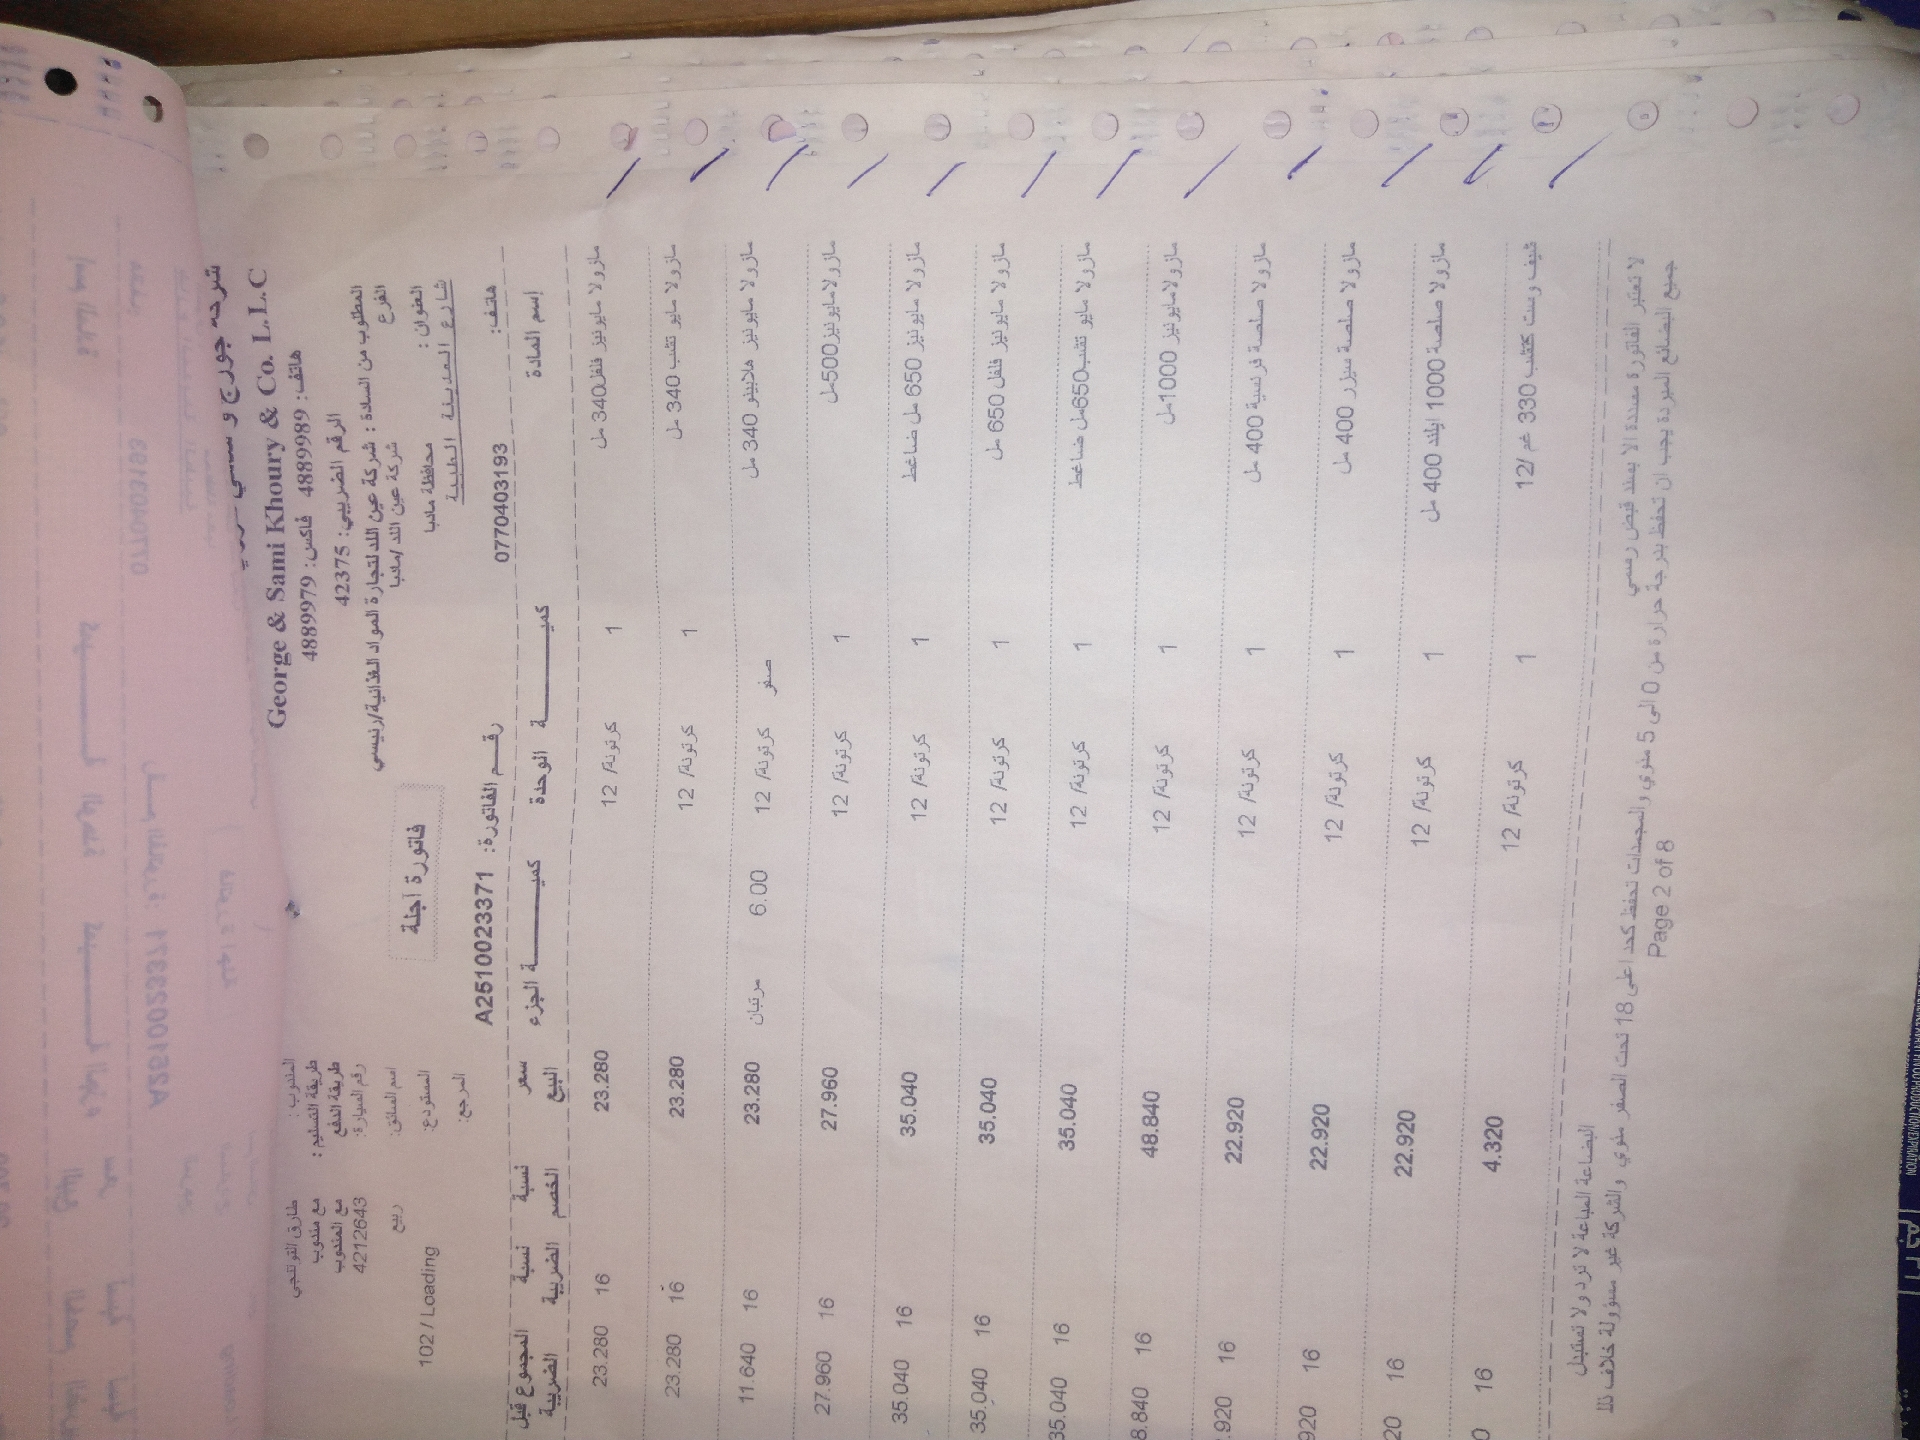 شركة جورج و سامي
George & Sami Khoury & Co. L.L.C
هاتف: 4889989 فاكس: 4889979
الرقم الضريبي: 42375
المطلوب من السادة : شركة عين اللد لتجارة المواد الغذائية/رئيسي
الفرع شركة عين اللد /مادبا
العنوان : محافظة مادبا
شارع المدينة الطبية
هاتف: 0770403193
فاتورة اجلة
رقم الفاتورة: A2510023371
المندوب: طارق القونجي
طريقة التسليم: مع مندوب
طريقة الدفع مع المندوب
رقم السيارة: 4212643
اسم السائق: ربيع
المستودع: 102 / Loading
المرجع:
إسم المادة كميـــة الوحدة كميـــة الجزء سعر البيع نسبة الخصم نسبة الضريبة المجموع قبل الضريبة
مازولا مايونيز فلفل340 مل 1 كرتونة/ 12 23.280 16 23.280
مازولا مايو تقنب 340 مل 1 كرتونة/ 12 23.280 16 23.280
مازولا مايونيز هلابينو 340 مل صفر كرتونة/ 12 6.00 مرتبان 23.280 16 11.640
مازولا مايونيز500مل 1 كرتونة/ 12 27.960 16 27.960
مازولا مايونيز 650 مل ضاغط 1 كرتونة/ 12 35.040 16 35.040
مازولا مايونيز فلفل 650 مل 1 كرتونة/ 12 35.040 16 35.040
مازولا مايو تقنب650مل ضاغط 1 كرتونة/ 12 35.040 16 35.040
مازولا مايونيز 1000مل 1 كرتونة/ 12 48.840 16 8.840
مازولا صلصة فرنسية 400 مل 1 كرتونة/ 12 22.920 16 .920
مازولا صلصة سيزر 400 مل 1 كرتونة/ 12 22.920 16 920
مازولا صلصة 1000 ايلند 400 مل 1 كرتونة/ 12 22.920 16 20
شيف وست كتشب 330 غم /12 1 كرتونة/ 12 4.320 16 0
لا تعتبر الفاتورة مسددة الا بسند قبض رسمي البضاعة المباعة لا ترد ولا تستبدل
جميع البضائع المبردة يجب ان تحفظ بدرجة حرارة من 0 الى 5 مئوي والمجمدات تحفظ كحد اعلى 18 تحت الصفر مئوي والشركة غير مسؤولة خلاف ذلك
Page 2 of 8